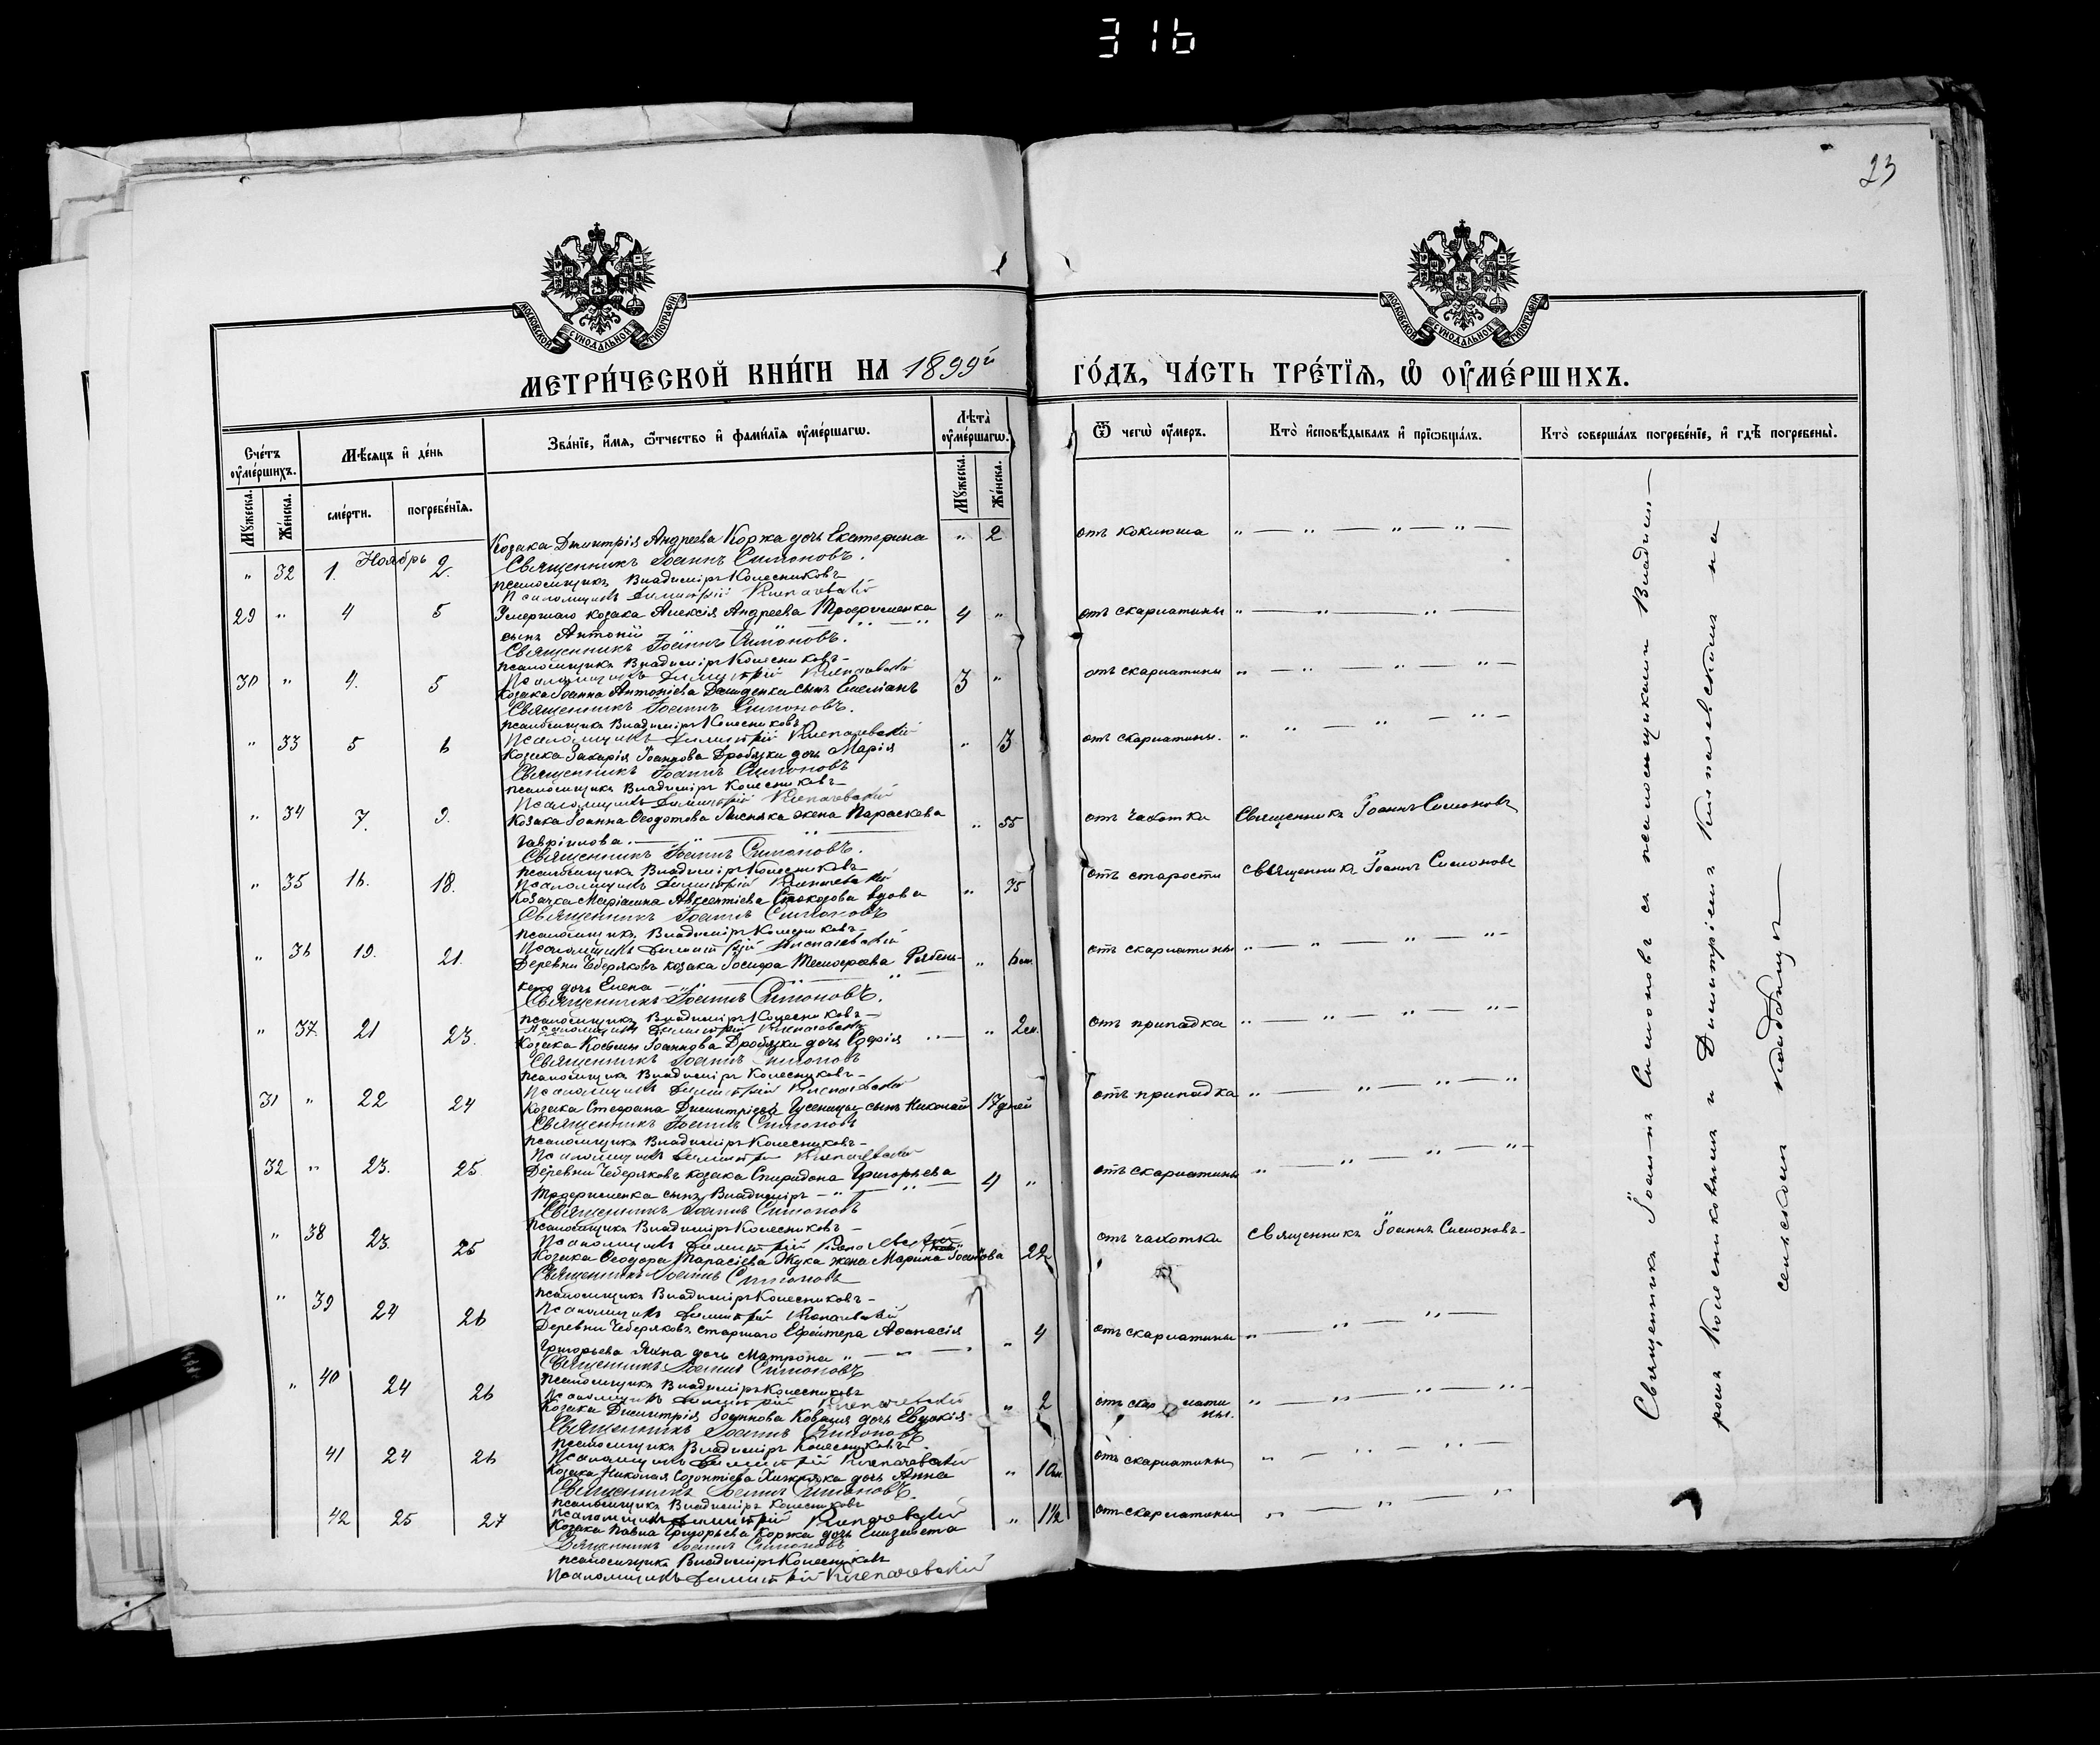 316
23
МОСКОВСКОЙ СУНОДАЛЬНОЙ ТИПОГРАФІИ
МОСКОВСКОЙ СУНОДАЛЬНОЙ ТИПОГРАФІИ
МЕТРИ́ЧЕСКОЙ КНИ́ГИ НА 1899й ГО́ДЪ, ЧА́СТЬ ТРЕ́ТЇѦ, Ѡ ОУМЕ́РШИХЪ.
Сче́тъ оумершихъ.
Мѣсяцъ и де́нь
Зва́нїе, и́мя, ѻ́тчество и фами́лїя оуме́ршагѡ.
Лѣта̀ оуме́ршагѡ.
Ѿ чегѡ̀ оу́меръ.
Кто̀ и́сповѣ́дывалъ и прїѡбща́лъ.
Кто̀ соверша́лъ погребе́нїе, и гдѣ̀ погребены̀.
Мꙋжеска.
Же́нска.
сме́рти.
погребе́нїя.
Мꙋжеска.
Же́нска.
Ноябрь
" 32 1. 2. Козака Димитрія Андреева Коржа дочь Екатерина " 2 отъ коклюша " — " — " — " —
Священникъ Іоаннъ Симоновъ.
псаломщикъ Владиміръ Колесниковъ
Псаломщикъ Димитрій
29 " 4 5 Умершаго козака Алексія Андреева Трофименка 4 " отъ скарлатины " — " — " —
сынъ Антоній — " — " — "
Священникъ Іоаннъ Симоновъ.
псаломщикъ Владиміръ Колесниковъ —
Псаломщикъ Димитрій
30 " 4. 5 Козака Іоанна Антоніева Демиденка сынъ Емеліанъ 3 " отъ скарлатины " — " — " — " —
Священникъ Іоаннъ Симоновъ.
псаломщикъ Владиміръ Колесниковъ
Псаломщикъ Димитрій
" 33 5 6 Козака Захарія Іоаннова Дробязки дочь Марія " 3 отъ скарлатины. " " — " — " —
Священникъ Іоаннъ Симоновъ
псаломщикъ Владиміръ Колесниковъ
Псаломщикъ Димитрій
" 34 7. 9. Козака Іоанна Ѳеодотова Лисняка жена Параскева " 55 отъ чахотки Священникъ Іоаннъ Симоновъ
Гавріилова. — " — " —
Священникъ Іоаннъ Симоновъ.
псаломщикъ Владиміръ Колесниковъ
Псаломщикъ Димитрій
" 35 16. 18. Козачка Маріамна Авксентіева вдова " 75 отъ старости священникъ Іоаннъ Симоновъ
Священникъ Іоаннъ Симоновъ
псаломщикъ Владиміръ Колесниковъ —
Псаломщикъ Димитрій
" 36 19. 21. Деревни Чеберяковъ козака Іосифа Тимофеева Рябень- " 6 м. отъ скарлатины " — " — " — " —
кого дочь Елена — " — " —
Священникъ Іоаннъ Симоновъ.
псаломщикъ Владиміръ Колесниковъ —
Псаломщикъ Димитрій
" 37. 21 23. Козака Косьмы Іоаннова Дробязки дочь Софія " — " 2 м. отъ припадка " — " — " — " —
Священникъ Іоаннъ Симоновъ
псаломщикъ Владиміръ Колесниковъ —
Псаломщикъ Димитрій
31 " 22 24 Козака Стефана Димитріева Гусеницы сынъ Николай 17 дней отъ припадка " — " — " — "
Священникъ Іоаннъ Симоновъ
псаломщикъ Владиміръ Колесниковъ —
Псаломщикъ Димитрій
32 " 23. 25. Деревни Чеберяковъ козака Спиридона Григорьева 4 " отъ скарлатины " — " — " — " —
Трофименка сынъ Владиміръ — " — " —
Священникъ Іоаннъ Симоновъ
псаломщикъ Владиміръ Колесниковъ —
Псаломщикъ Димитрій
" 38 23. 25 Козака Ѳеодора Тарасіева Жука жена Марина Іоаннова 22 отъ чахотки священникъ Іоаннъ Симоновъ —
Священникъ Іоаннъ Симоновъ
псаломщикъ Владиміръ Колесниковъ —
Псаломщикъ Димитрій
" 39 24 26 Деревни Чеберяковъ старшаго Ефрейтера Аѳанасія " 4 отъ скарлатины " — " — " —
Григорьева Яхна дочь Матрона " — " — .
Священникъ Іоаннъ Симоновъ
псаломщикъ Владиміръ Колесниковъ
Псаломщикъ Димитрій
" 40 24 26 Козака Димитрія Іоаннова Коваля дочь Евдокія " 2 отъ скарлати
ны. " — " — " — " —
Священникъ Іоаннъ Симоновъ
псаломщикъ Владиміръ Колесниковъ
Псаломщикъ Димитрій
41 24 26 Козака Николая Созонтіева Хижняка дочь Анна " 10 м. отъ скарлатины " — " — " —
Священникъ Іоаннъ Симоновъ.
псаломщикъ Владиміръ Колесниковъ
Псаломщикъ Димитрій
42 25 27 Козака Павла Григорьева Коржа дочь Елизавета " 1½ отъ скарлатины " — " — "
Священникъ Іоаннъ Симоновъ
псаломщикъ Владиміръ Колесниковъ
Псаломщикъ Димитрій
Священникъ Іоаннъ Симоновъ съ псаломщиками Владими—
ромъ Колесниковымъ и Димитріемъ на
сельскомъ кладбищѣ —